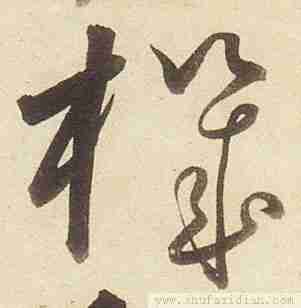 機
www.shufazidian.com